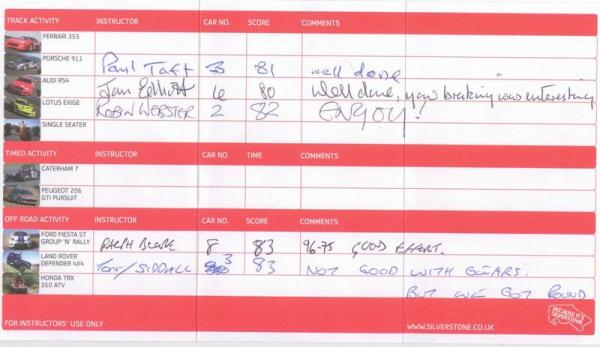 TRACK ACTIVITY INSTRUCTOR CAR NO. SCORE COMMENTS
FERRARI 355
PORSCHE 911 Paul Taft 3 81 well done
AUDI RS4 80 Well done, your braking was interesting
LOTUS EXIGE ROBIN WEBSTER 2 82 ENJOY!
SINGLE SEATER
TIMED ACTIVITY INSTRUCTOR CAR NO. TIME COMMENTS
CATERHAM 7
PEUGEOT 206
GTI PURSUIT
OFF ROAD ACTIVITY INSTRUCTOR CAR NO. SCORE COMMENTS
FORD FIESTA ST
GROUP 'N' RALLY RALPH 8 83 96-75 GOOD EFFORT.
LAND ROVER
DEFENDER 4X4 TONY SIDDALL 3 83 NOT GOOD WITH GEARS.
HONDA TRX
350 ATV BUT WE GOT ROUND
FOR INSTRUCTORS' USE ONLY WWW.SILVERSTONE.CO.UK
BECAUSE IT'S
SILVERSTONE